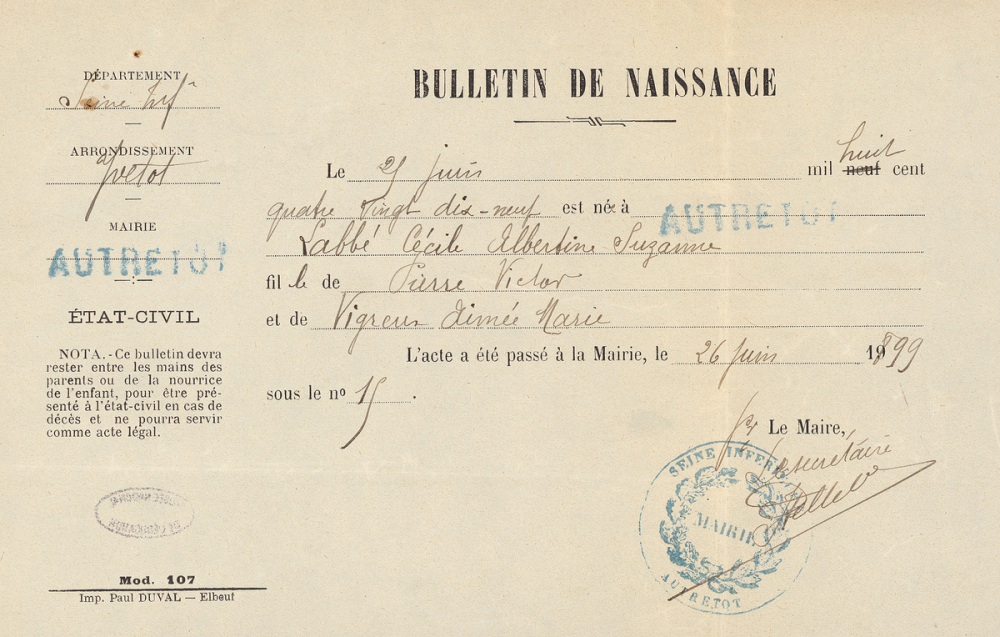 DÉPARTEMENT
Seine Infre
ARRONDISSEMENT
Yvetot
MAIRIE
AUTRETOT
ÉTAT-CIVIL
NOTA. - Ce bulletin devra
rester entre les mains des
parents ou de la nourrice
de l'enfant, pour être pré-
senté à l'état-civil en cas de
décès et ne pourra servir
comme acte légal.
MUSÉE NATIONAL
DE L'ÉDUCATION
Mod. 107
Imp. Paul DUVAL — Elbeuf
BULLETIN DE NAISSANCE
huit
Le 25 juin mil neuf cent
quatre vingt dix-neuf est née à AUTRETOT
Labbé Cécile Albertine Suzanne
fille de Pierre Victor
et de Vigreux Aimée Marie
L'acte a été passé à la Mairie, le 26 juin 1899
sous le no 15.
pr Le Maire,
Le secrétaire
SEINE INFERIE
MAIRIE
AUTRETOT